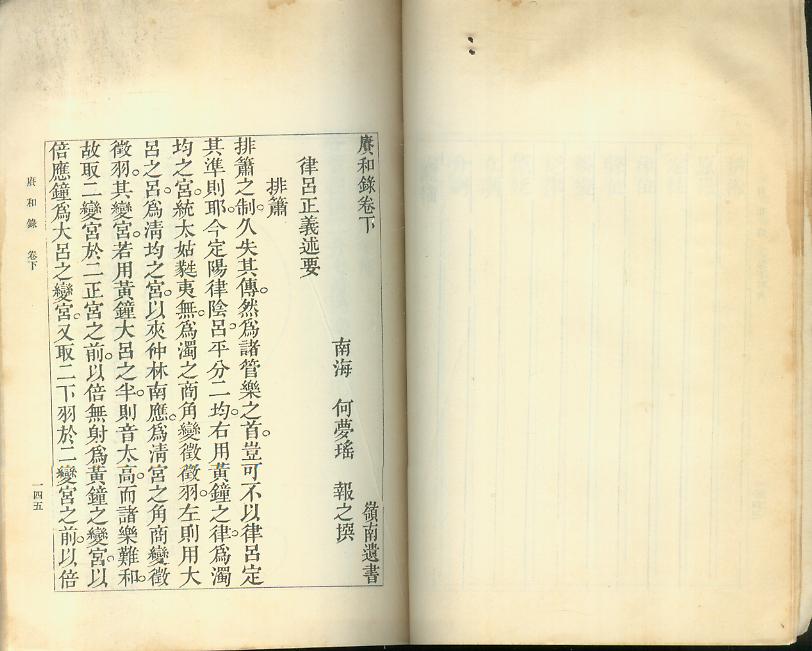 賡和錄卷下　嶺南遺書
南海　何夢瑤　報之撰
律呂正義述要
排簫
排簫之制。久失其傳。然爲諸管樂之首。豈可不以律呂定
其準則耶。今定陽律陰呂。平分二均。右用黃鐘之律。爲濁
均之宮。統太姑蕤夷無。爲濁之商角變徵徵羽。左則用大
呂之呂。爲淸均之宮。以夾仲林南應。爲淸宮之角商變徵
徵羽。其變宮。若用黃鐘大呂之半。則音太高。而諸樂難和。
故取二變宮於二正宮之前。以倍無射爲黃鐘之變宮。以
倍應鐘爲大呂之變宮。又取二下羽於二變宮之前。以倍
賡和錄　卷下
一四五